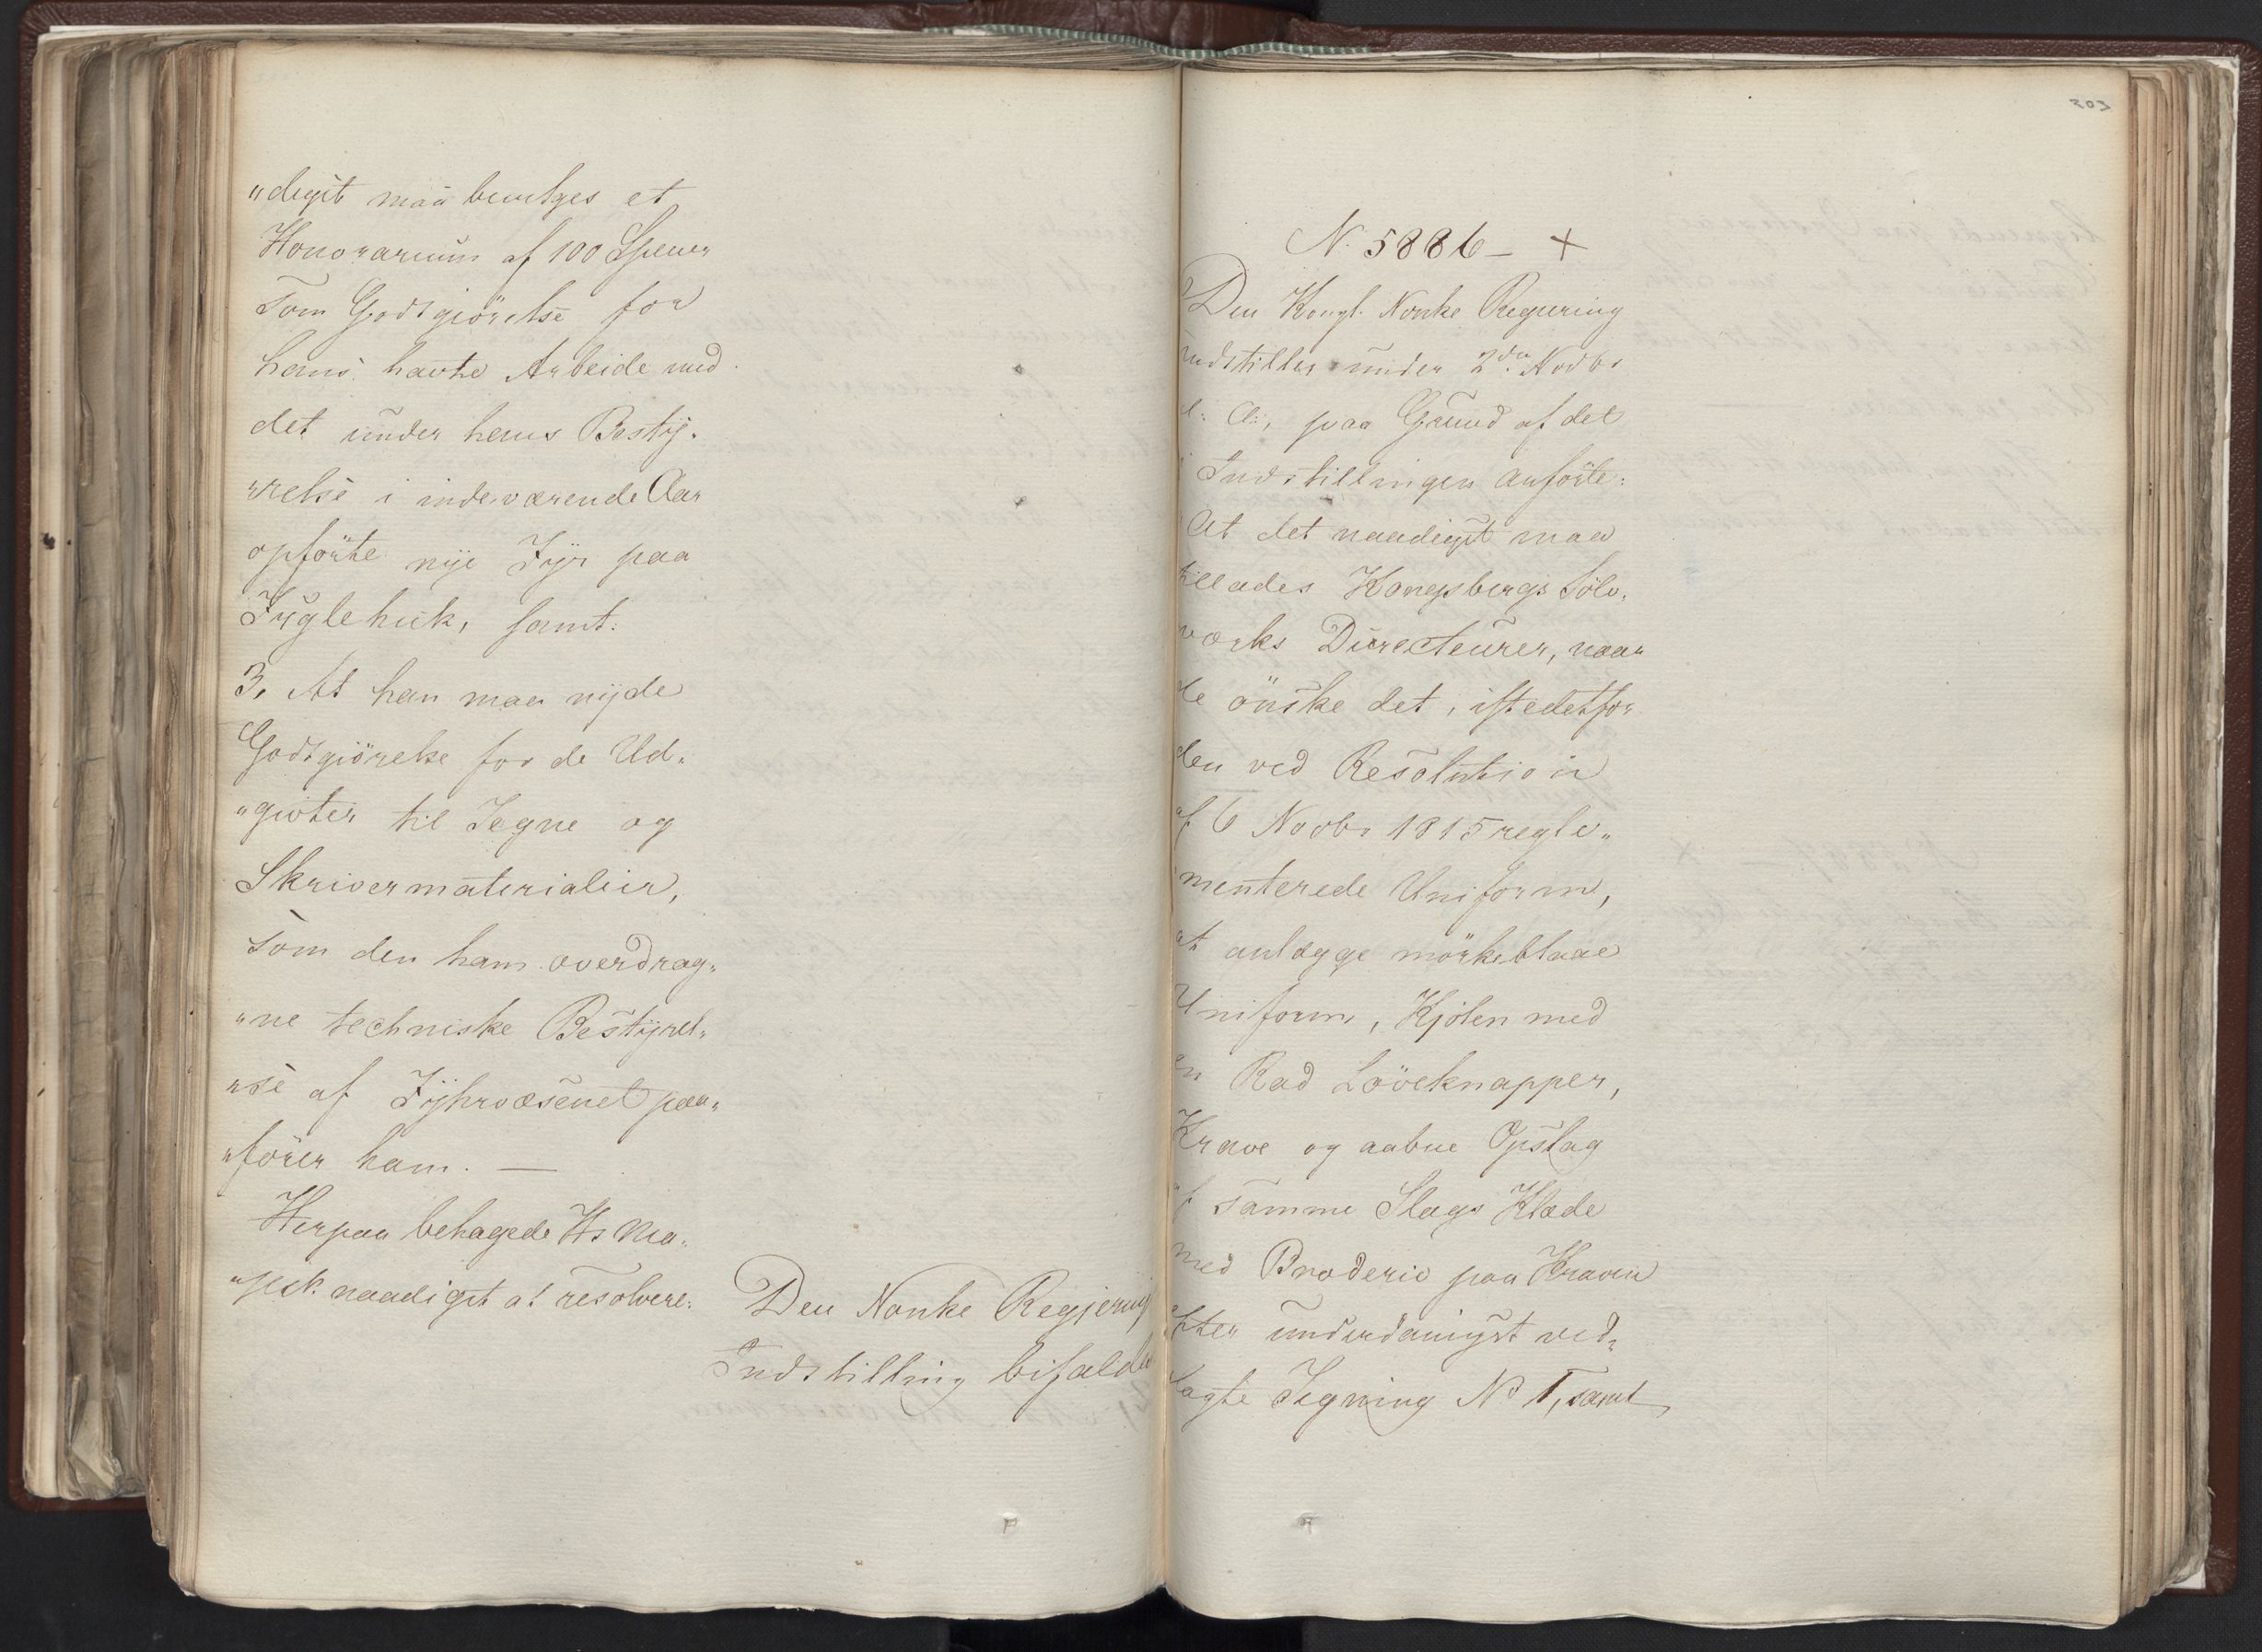 „digst maa bevilges et
Honorarium af 100 Species
som Godtgiörelse for
hans havte Arbeide med
det under hans Besty„
„relse i indeværende Aar
opförte nye Fyr paa
Fuglehuk, samt:
3, At han maa nyde
Godtgiörelse for de Ud„
„givter til Tegne og
Skrivermaterialier,
som den ham overdrag„
„ne techniske Bestyrel„
„se af Fyhrvæsenet paa„
„förer ham. —
Herpaa behagede Hs Ma„
„jest. naadigst at resolvere:
Den Norske Regjerings
Indstilling bifaldes
303
N. 5886 — +
Den Kongl. Norske Regiering
indstiller under 2den Novbr
d: A:, paa Grund af det
i Indstillingen anförte:
At det naadigst maa
tillades Kongsbergs Sölv„
værks Directeurer, naar
de önske det, istedetfor
den ved Resolution
af 6 Novbr 1815 regle„
menterede Uniform,
at anlægge mörkeblaae
Uniform, Kjolen med
en Rad Löveknapper,
Krave og aabne Opslag
af samme Slags Klæde
med Broderie paa Kraven
efter underdanigst ved„
lagte Tegning No 1, samt